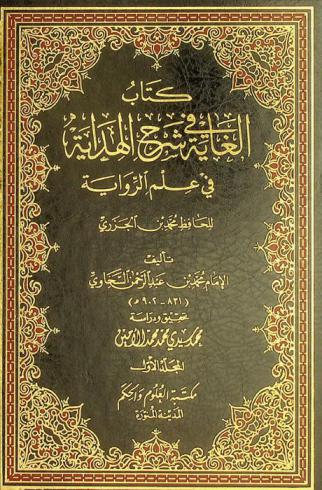 كتاب
الغاية في شرح الهداية
في علم الرواية
للحافظ محمد بن الجزري
تأليف
الإمام محمد بن عبد الرحمن السخاوي
(٨٣١ - ٩٠٢ ه)
تحقيق ودراسة
محمد سيدي محمد محمد الأمين
المجلد الأول
مكتبة العلوم والحكم
المدينة المنورة